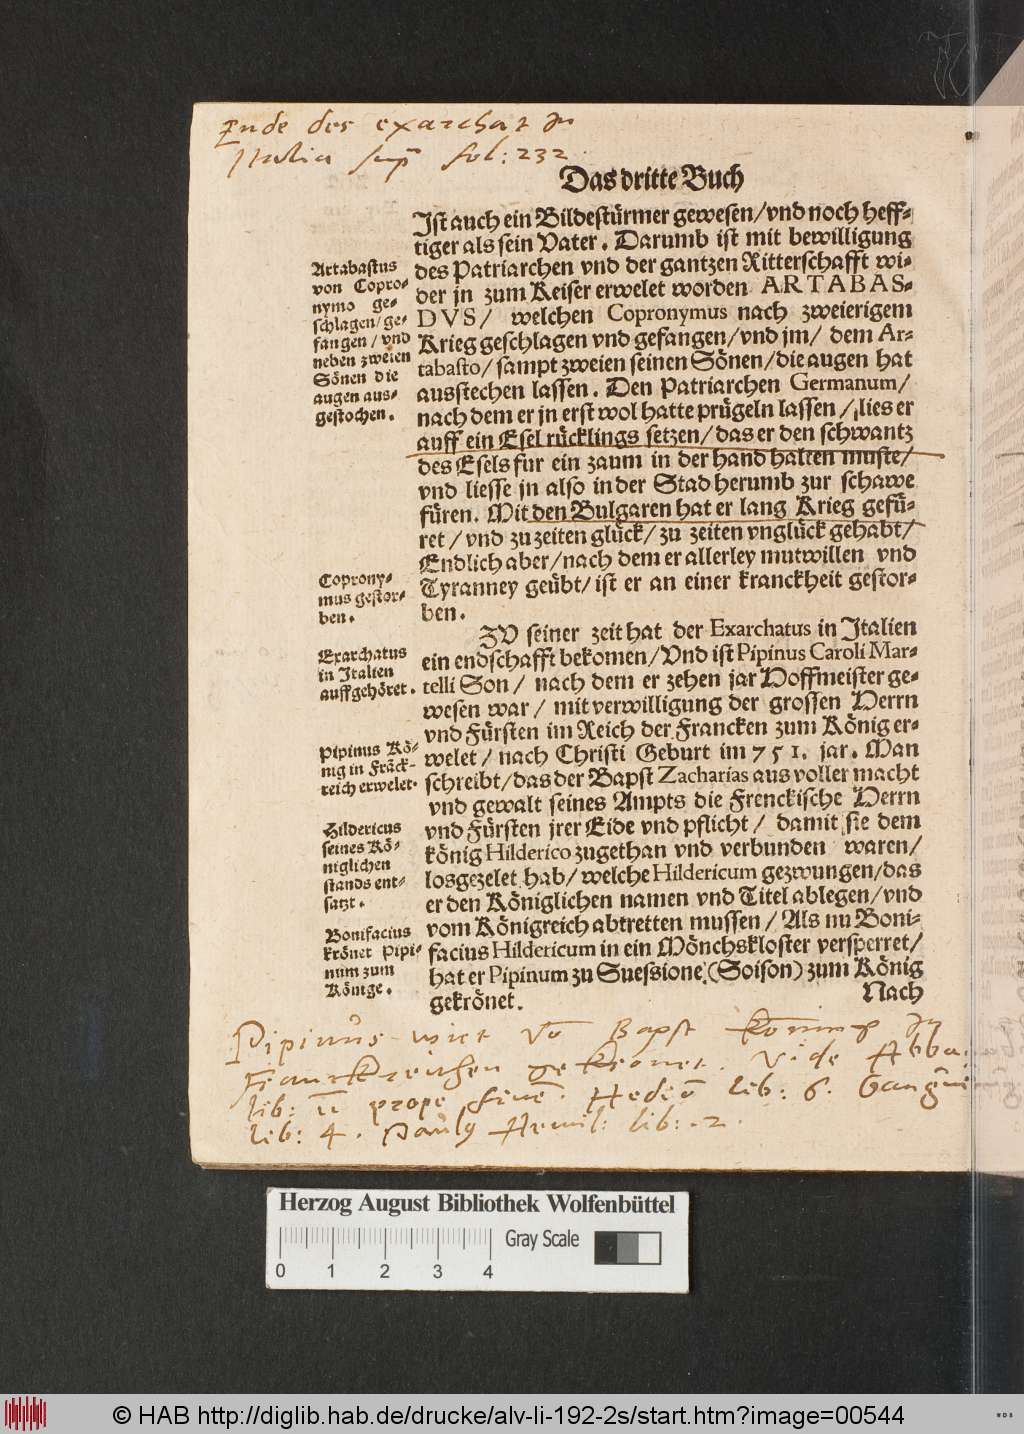 Ende des exarchat In
Italia sup fol: 232
Das dritte Buch
Ist auch ein Bildestürmer gewesen/vnd noch heff-
tiger als sein Vater. Darumb ist mit bewilligung
des Patriarchen vnd der gantzen Ritterschafft wi-
der jn zum Keiser erwelet worden ARTABAS-
DVS/ welchen Copronymus nach zweierigem
Krieg geschlagen vnd gefangen/vnd jm/ dem Ar-
tabasto/sampt zweien seinen Sönen/die augen hat
ausstechen lassen. Den Patriarchen Germanum/
nach dem er jn erst wol hatte prügeln lassen/lies er
auff ein Esel rücklings setzen/das er den schwantz
des Esels fur ein zaum in der hand halten muste/
vnd liesse jn also in der Stad herumb zur schawe
füren. Mit den Bulgaren hat er lang Krieg gefü-
ret/vnd zu zeiten glück/zu zeiten vnglück gehabt/
Endlich aber/nach dem er allerley mutwillen vnd
Tyranney geübt/ist er an einer kranckheit gestor-
ben.
ZV seiner zeit hat der Exarchatus in Italien
ein endschafft bekomen/Vnd ist Pipinus Caroli Mar-
telli Son/ nach dem er zehen jar Hoffmeister ge-
wesen war/ mit verwilligung der grossen Herrn
vnd Fürsten im Reich der Francken zum König er-
welet/ nach Christi Geburt im 751. jar. Man
schreibt/das der Bapst Zacharias aus voller macht
vnd gewalt seines Ampts die Frenckische Herrn
vnd Fürsten jrer Eide vnd pflicht/ damit sie dem
könig Hilderico zugethan vnd verbunden waren/
losgezelet hab/welche Hildericum gezwungen/das
er den Königlichen namen vnd Titel ablegen/vnd
vom Königreich abtretten mussen/ Als nu Boni-
facius Hildericum in ein Mönchskloster versperret/
hat er Pipinum zu Suessione (Soison) zum König
gekrönet.
Nach
Artabastus
von Copro-
nymo ge-
schlagen/ge-
fangen/vnd
neben zweien
Sönen die
augen aus-
gestochen.
Coprony-
mus gestor-
ben.
Exarchatus
in Italien
auffgehöret.
Pipinus Kö-
nig in Franck-
reich erwelet.
Hildericus
seines Kö-
niglichen
stands ent-
satzt.
Bonifacius
krönet Pipi-
num zum
Könige.
Pipinus wirt Vo Bapst In
Franckreichen gekronet. Vide Abba.
lib: 11 prope fine. Hedio lib: 6.
lib: 4. Pauly Aemil: lib: 2.
Herzog August Bibliothek Wolfenbüttel
Gray Scale
0 1 2 3 4
© HAB http://diglib.hab.de/drucke/alv-li-192-2s/start.htm?image=00544